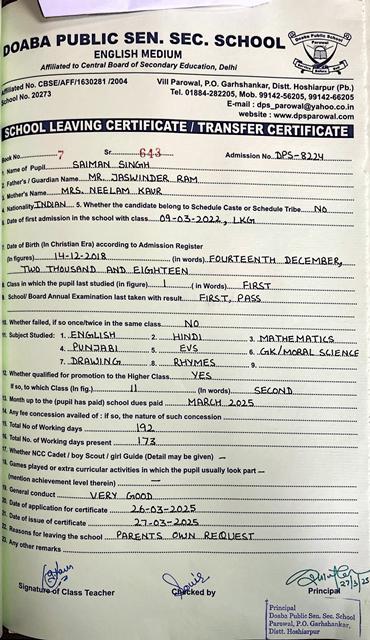 DOABA PUBLIC SEN. SEC. SCHOOL
ENGLISH MEDIUM
Affiliated to Central Board of Secondary Education, Delhi
Doaba Public School
Parowal
Affiliated No. CBSE/AFF/1630281 /2004
School No. 20273
Vill Parowal, P.O. Garhshankar, Distt. Hoshiarpur (Pb.)
Tel. 01884-282205, Mob. 99142-56205, 99142-66205
E-mail : dps_parowal@yahoo.co.in
website : www.dpsparowal.com
SCHOOL LEAVING CERTIFICATE / TRANSFER CERTIFICATE
Book No. 7 Sr. 643 Admission No. DPS-8224
1. Name of Pupil SAIMAN SINGH
2. Father's / Guardian Name MR. JASWINDER RAM
3. Mother's Name MRS. NEELAM KAUR
4. Nationality INDIAN 5. Whether the candidate belong to Schedule Caste or Schedule Tribe NO
6. Date of first admission in the school with class 09-03-2022, LKG
7. Date of Birth (In Christian Era) according to Admission Register
(In figures) 14-12-2018 (in words) FOURTEENTH DECEMBER,
TWO THOUSAND AND EIGHTEEN
8. Class in which the pupil last studied (in figure) 1 (in Words) FIRST
9. School/ Board Annual Examination last taken with result FIRST, PASS
10. Whether failed, if so once/twice in the same class NO
11. Subject Studied: 1. ENGLISH 2. HINDI 3. MATHEMATICS
4. PUNJABI 5. EVS 6. GK/MORAL SCIENCE
7. DRAWING 8. RHYMES 9.
12. Whether qualified for promotion to the Higher Class YES
If so, to which Class (In fig.) II (In words) SECOND
13. Month up to the (pupil has paid) school dues paid MARCH 2025
14. Any fee concession availed of : if so, the nature of such concession
15. Total No of Working days 192
16. Total No. of Working days present 173
17. Whether NCC Cadet / boy Scout / girl Guide (Detail may be given) –
18. Games played or extra curricular activities in which the pupil usually took part –
(mention achievement level therein) –
19. General conduct VERY GOOD
20. Date of application for certificate 26-03-2025
21. Date of issue of certificate 27-03-2025
22. Reasons for leaving the school PARENTS OWN REQUEST
23. Any other remarks
27/3/25
Signature of Class Teacher Checked by Principal
Principal
Doaba Public Sen. Sec. School
Parowal, P.O. Garhshankar,
Distt. Hoshiarpur